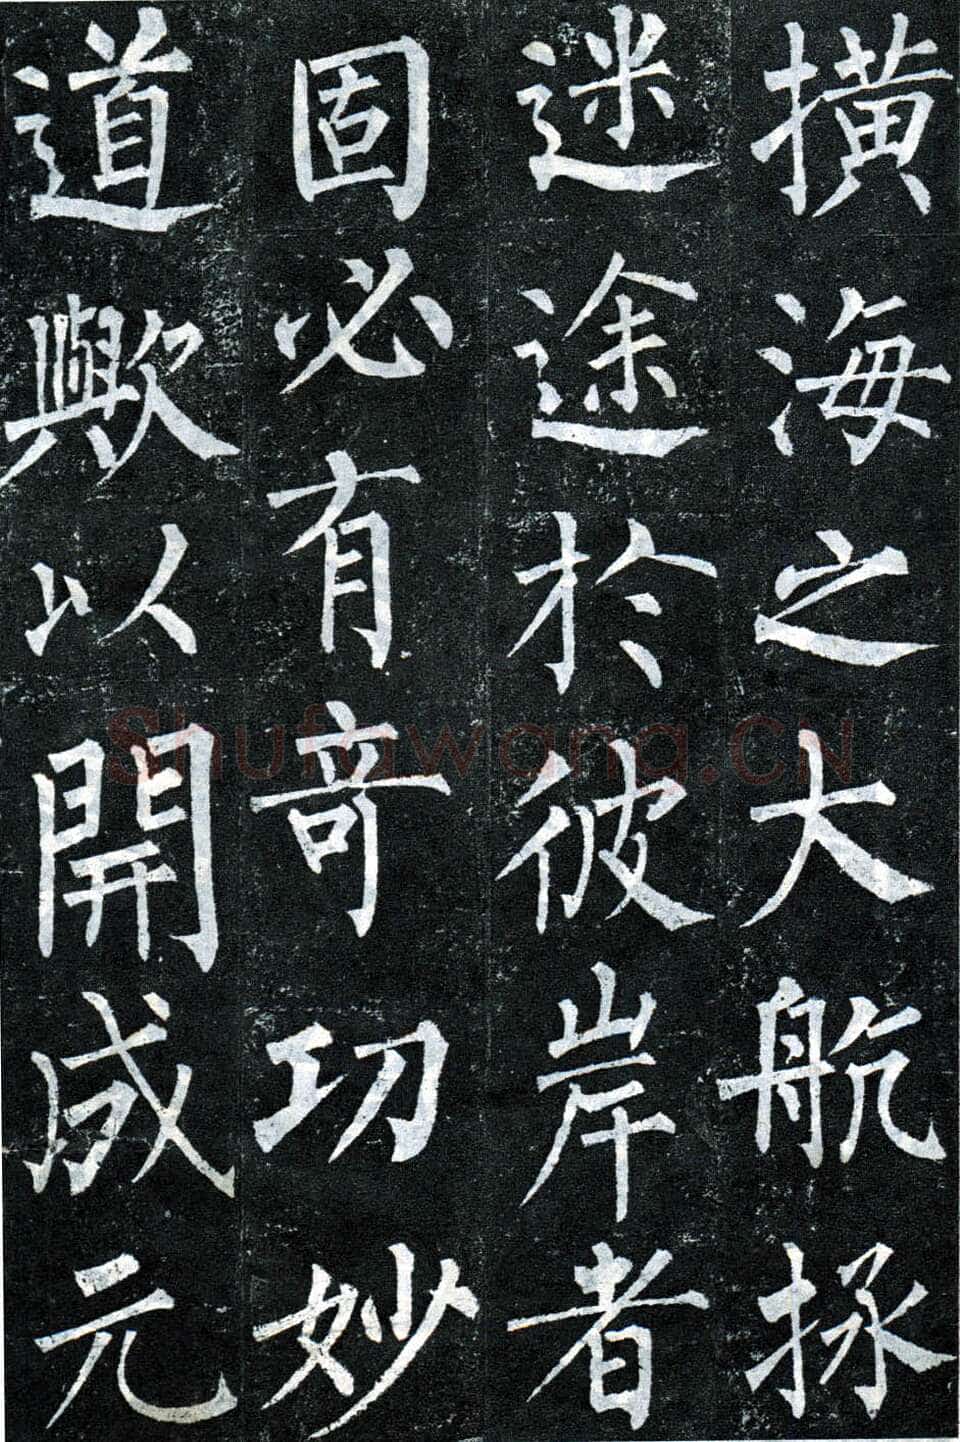 横海之大航拯
迷途於彼岸者
固必有奇功妙
道歟以開成元
Shufawang.CN